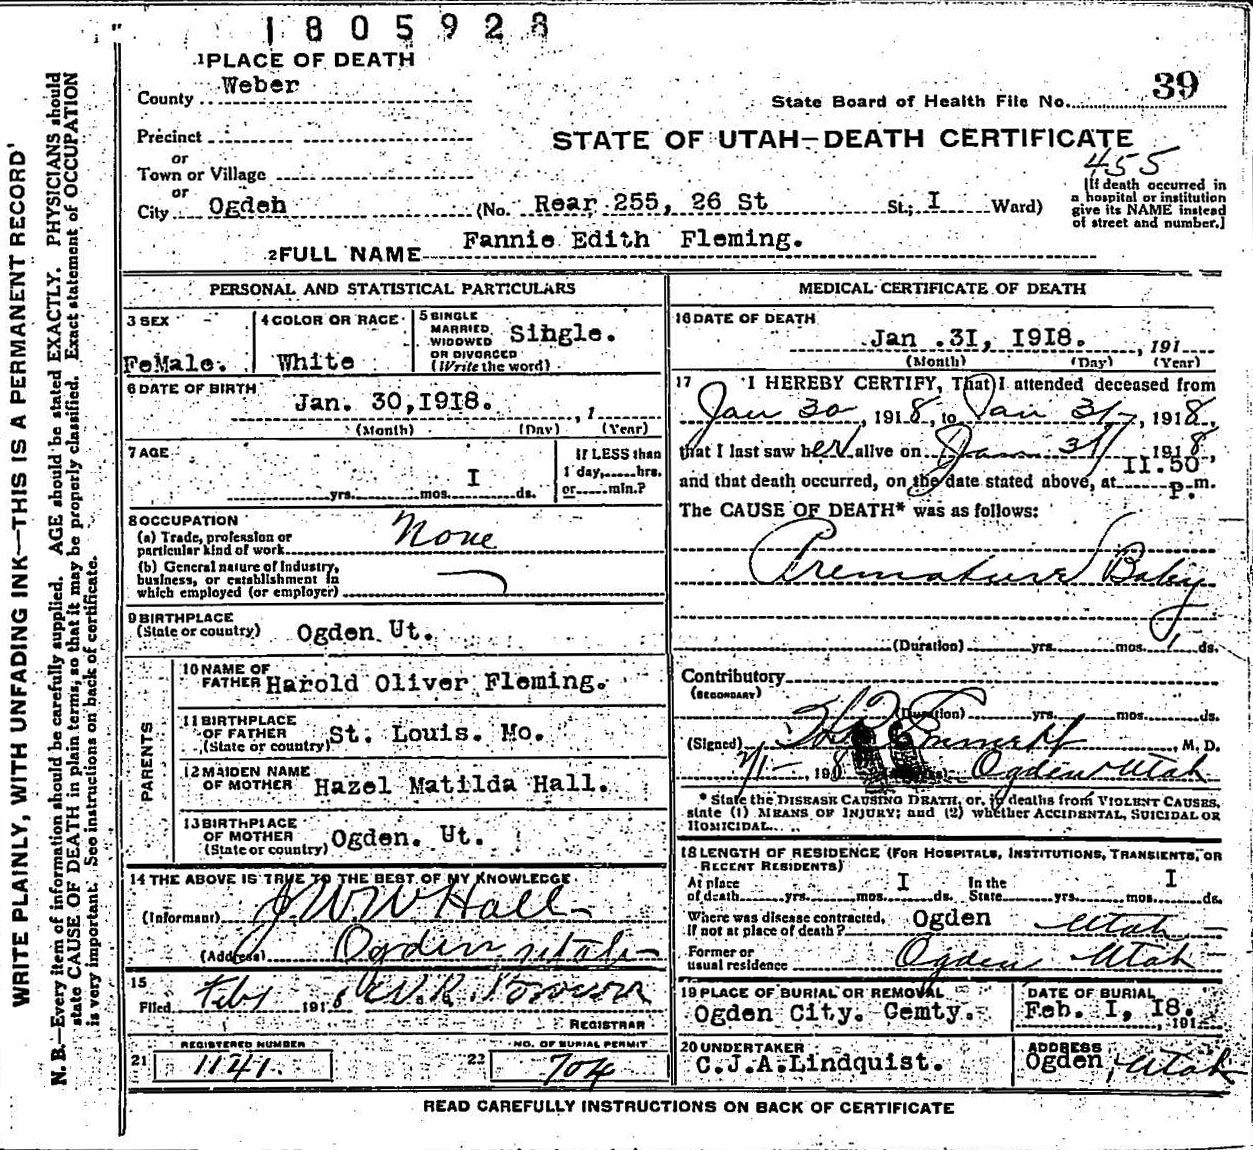 1805928
1 PLACE OF DEATH
County Weber
State Board of Health File No. 39
Precinct
STATE OF UTAH—DEATH CERTIFICATE
or
455
Town or Village
or
City Ogden (No. Rear 255, 26 St St.; I Ward)
[If death occurred in
a hospital or institution
give its NAME instead
of street and number.]
2 FULL NAME Fannie Edith Fleming.
PERSONAL AND STATISTICAL PARTICULARS
3 SEX
FeMale.
4 COLOR OR RACE
White
5 SINGLE
MARRIED,
WIDOWED
OR DIVORCED
(Write the word)
Single.
6 DATE OF BIRTH
Jan. 30,1918. , 1
(Month) (Day) (Year)
7 AGE
yrs. mos. I ds.
If LESS than
1 day, hrs.
or min.?
8 OCCUPATION
(a) Trade, profession or
particular kind of work None
(b) General nature of Industry,
business, or establishment in
which employed (or employer)
9 BIRTHPLACE
(State or country) Ogden Ut.
PARENTS
10 NAME OF
FATHER Harold Oliver Fleming.
11 BIRTHPLACE
OF FATHER
(State or country) St. Louis. Mo.
12 MAIDEN NAME
OF MOTHER Hazel Matilda Hall.
13 BIRTHPLACE
OF MOTHER
(State or country) Ogden. Ut.
14 THE ABOVE IS TRUE TO THE BEST OF MY KNOWLEDGE
(Informant) J W W Hall
(Address) Ogden Utah
15
Filed Feb 1 1918 W.R.
REGISTRAR
21 REGISTERED NUMBER
1141.
22 NO. OF BURIAL PERMIT
704
MEDICAL CERTIFICATE OF DEATH
16 DATE OF DEATH
Jan .31, 1918. , 191
(Month) (Day) (Year)
17 I HEREBY CERTIFY, That I attended deceased from
Jan 30, 1918, to Jan 31, 1918,
that I last saw her alive on Jan 31, 1918,
and that death occurred, on the date stated above, at II.50 P.m.
The CAUSE OF DEATH* was as follows:
Premature Baby
(Duration) yrs. mos. 1 ds.
Contributory
(SECONDARY)
(Duration) yrs. mos. ds.
(Signed) Emmett, M. D.
2/1- 1918 (Address) Ogden Utah
* State the DISEASE CAUSING DEATH, or, in deaths from VIOLENT CAUSES,
state (1) MEANS OF INJURY; and (2) whether ACCIDENTAL, SUICIDAL OR
HOMICIDAL.
18 LENGTH OF RESIDENCE (FOR HOSPITALS, INSTITUTIONS, TRANSIENTS, OR
RECENT RESIDENTS)
At place
of death yrs. mos. I ds.
In the
State yrs. mos. I ds.
Where was disease contracted,
If not at place of death? Ogden Utah
Former or
usual residence Ogden Utah
19 PLACE OF BURIAL OR REMOVAL
Ogden City. Cemty.
DATE OF BURIAL
Feb. I, I8. , 191
20 UNDERTAKER
C.J.A.Lindquist.
ADDRESS
Ogden, Utah
READ CAREFULLY INSTRUCTIONS ON BACK OF CERTIFICATE
WRITE PLAINLY, WITH UNFADING INK—THIS IS A PERMANENT RECORD
N. B.—Every item of information should be carefully supplied. AGE should be stated EXACTLY. PHYSICIANS should
state CAUSE OF DEATH in plain terms, so that it may be properly classified. Exact statement of OCCUPATION
is very important. See instructions on back of certificate.